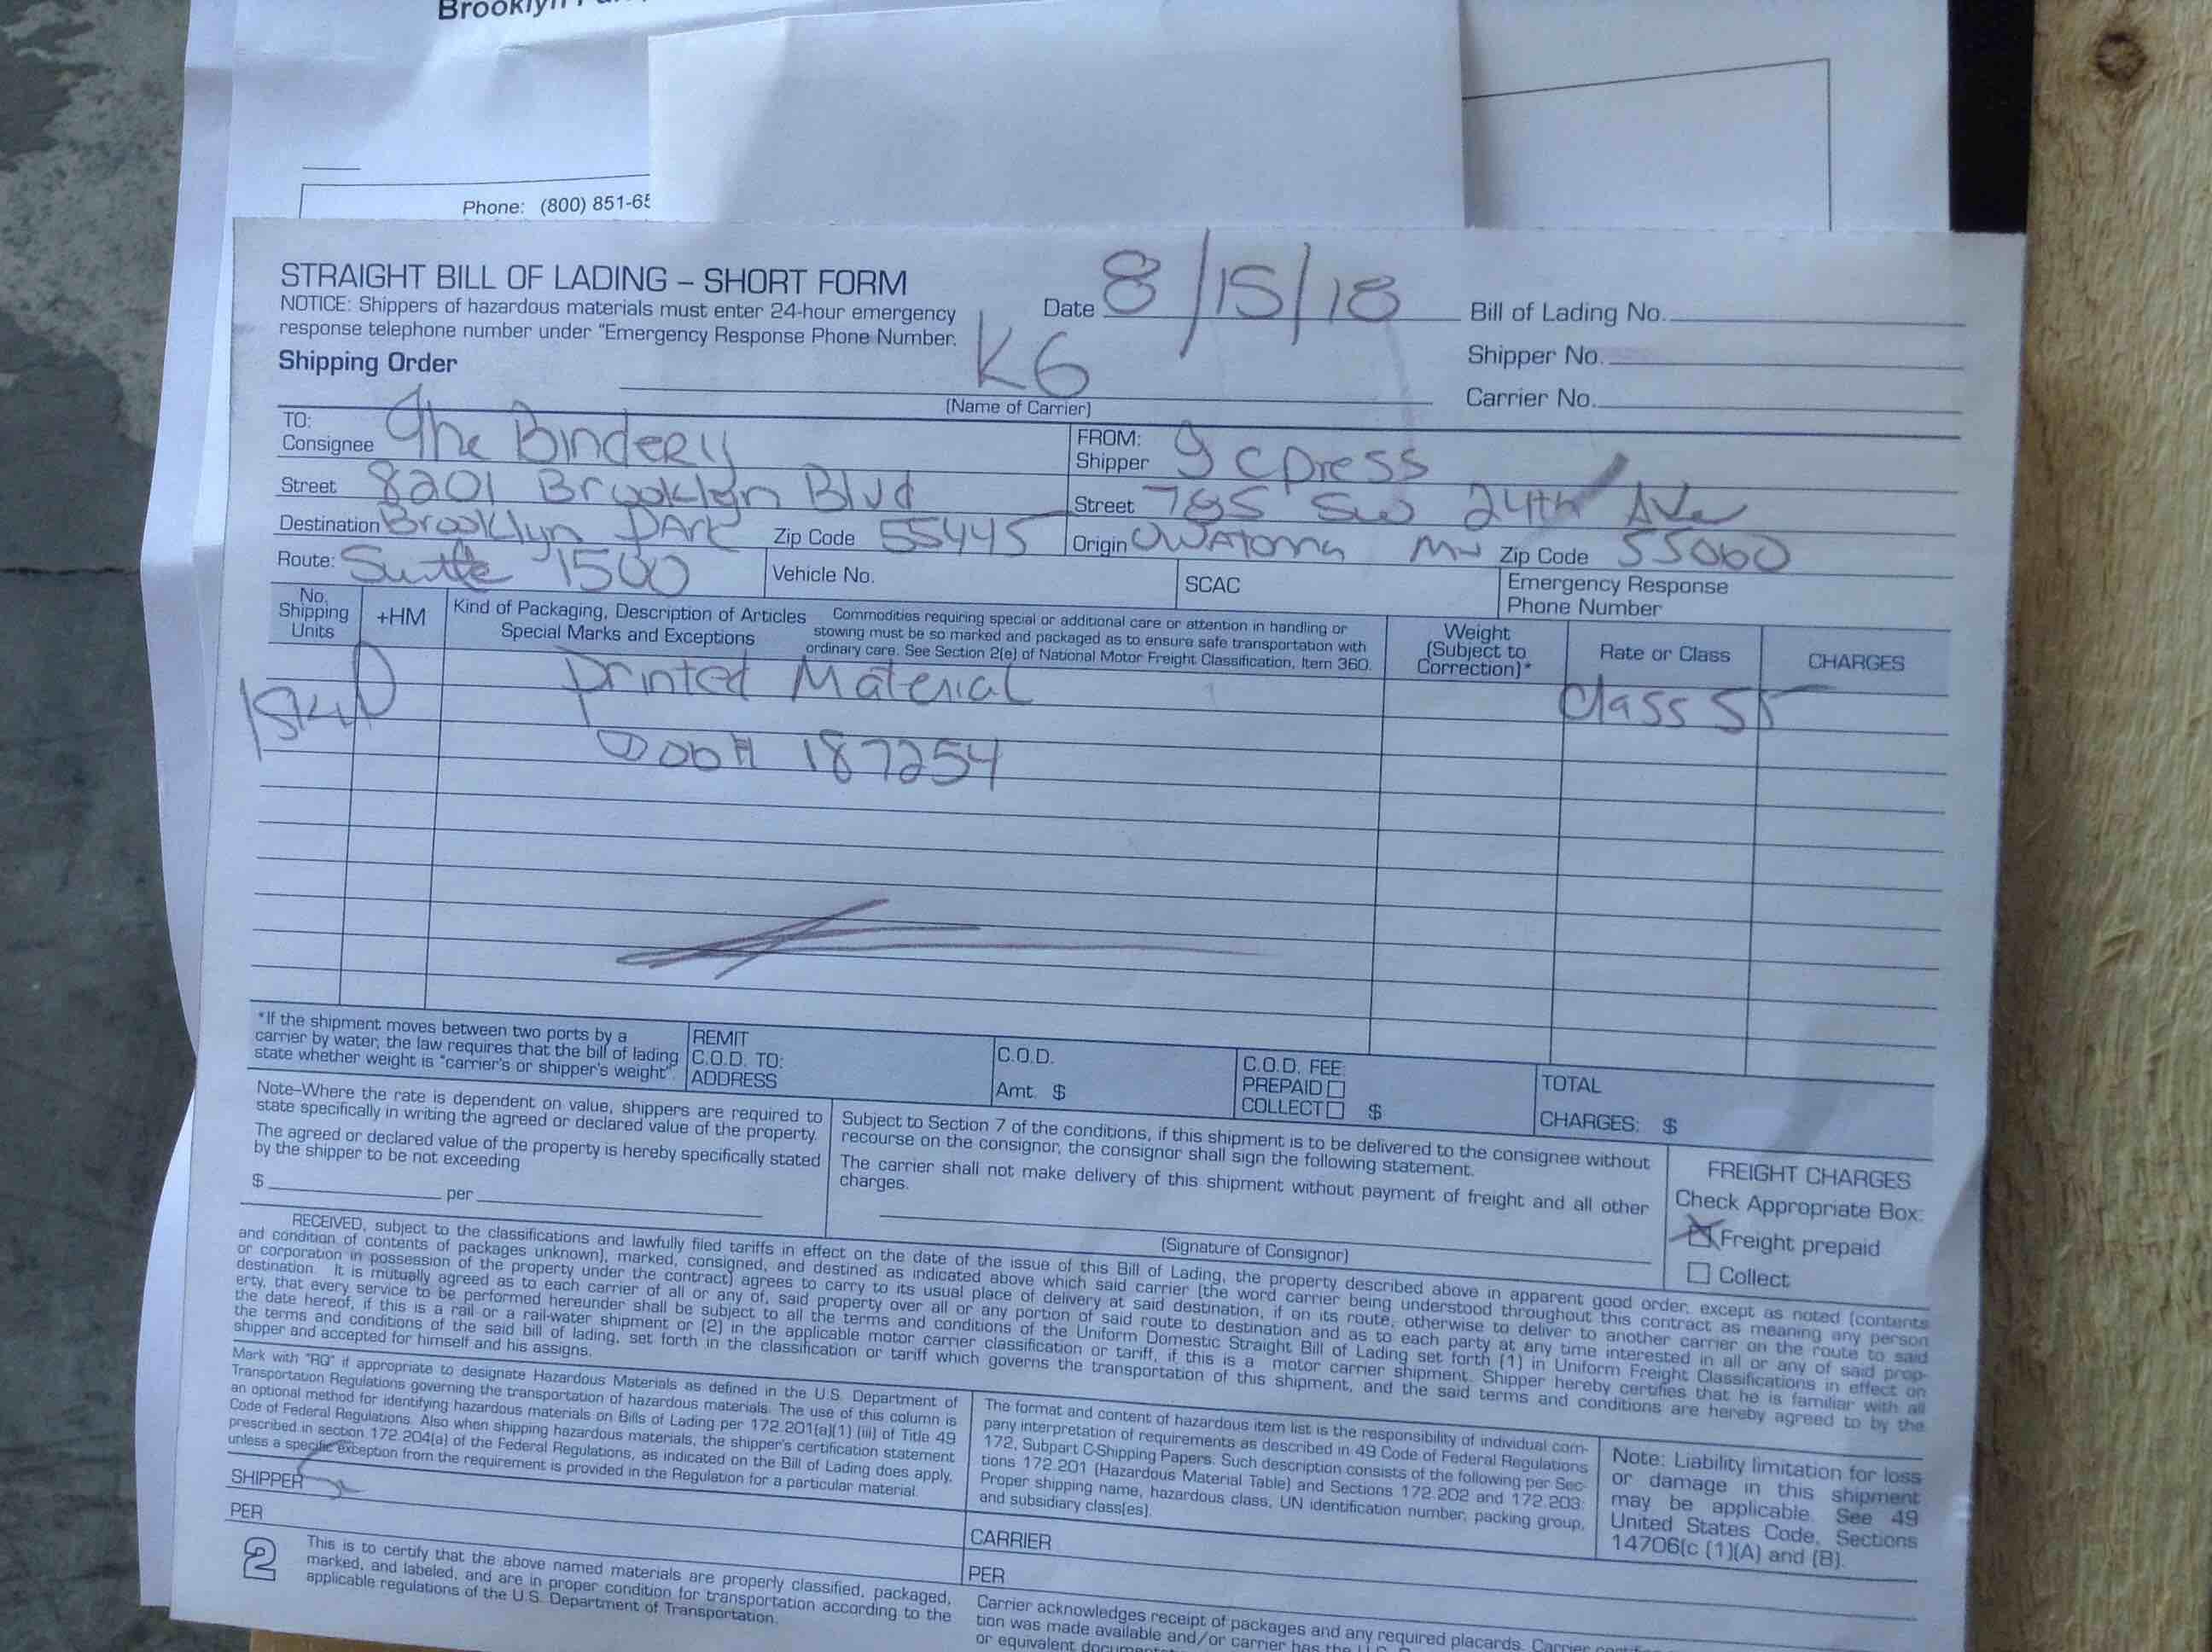 Brooklyn
Phone: (800) 851-65
STRAIGHT BILL OF LADING – SHORT FORM
NOTICE: Shippers of hazardous materials must enter 24-hour emergency
response telephone number under "Emergency Response Phone Number.
Shipping Order
Date 8/15/18
K6
(Name of Carrier)
Bill of Lading No.
Shipper No.
Carrier No.
TO:
Consignee The Bindery
Street 8201 Brooklyn Blvd
Destination Brooklyn Park Zip Code 55445
Route: Suite 1500
Vehicle No.
FROM:
Shipper JCPress
Street 785 SW 24th Ave
Origin Owatonna MN Zip Code 55060
SCAC
Emergency Response
Phone Number
No.
Shipping
Units
+HM
Kind of Packaging, Description of Articles
Special Marks and Exceptions
Commodities requiring special or additional care or attention in handling or
stowing must be so marked and packaged as to ensure safe transportation with
ordinary care. See Section 2(e) of National Motor Freight Classification, Item 360.
Weight
(Subject to
Correction)*
Rate or Class
CHARGES
1 Skid
Printed Material
Class 55
Job# 187254
*If the shipment moves between two ports by a
carrier by water, the law requires that the bill of lading
state whether weight is "carrier's or shipper's weight".
REMIT
C.O.D. TO:
ADDRESS
C.O.D.
Amt. $
C.O.D. FEE:
PREPAID
COLLECT $
TOTAL
CHARGES: $
Note–Where the rate is dependent on value, shippers are required to
state specifically in writing the agreed or declared value of the property.
The agreed or declared value of the property is hereby specifically stated
by the shipper to be not exceeding
$ per
Subject to Section 7 of the conditions, if this shipment is to be delivered to the consignee without
recourse on the consignor, the consignor shall sign the following statement.
The carrier shall not make delivery of this shipment without payment of freight and all other
charges.
(Signature of Consignor)
FREIGHT CHARGES
Check Appropriate Box:
Freight prepaid
Collect
RECEIVED, subject to the classifications and lawfully filed tariffs in effect on the date of the issue of this Bill of Lading, the property described above in apparent good order, except as noted (contents
and condition of contents of packages unknown), marked, consigned, and destined as indicated above which said carrier (the word carrier being understood throughout this contract as meaning any person
or corporation in possession of the property under the contract) agrees to carry to its usual place of delivery at said destination, if on its route, otherwise to deliver to another carrier on the route to said
destination. It is mutually agreed as to each carrier of all or any of, said property over all or any portion of said route to destination and as to each party at any time interested in all or any of said prop-
erty, that every service to be performed hereunder shall be subject to all the terms and conditions of the Uniform Domestic Straight Bill of Lading set forth (1) in Uniform Freight Classifications in effect on
the date hereof, if this is a rail or a rail-water shipment or (2) in the applicable motor carrier classification or tariff, if this is a motor carrier shipment. Shipper hereby certifies that he is familiar with all
the terms and conditions of the said bill of lading, set forth in the classification or tariff which governs the transportation of this shipment, and the said terms and conditions are hereby agreed to by the
shipper and accepted for himself and his assigns.
Mark with "RQ" if appropriate to designate Hazardous Materials as defined in the U.S. Department of
Transportation Regulations governing the transportation of hazardous materials. The use of this column is
an optional method for identifying hazardous materials on Bills of Lading per 172.201(a)(1) (iii) of Title 49
Code of Federal Regulations. Also when shipping hazardous materials, the shipper's certification statement
prescribed in section 172.204(a) of the Federal Regulations, as indicated on the Bill of Lading does apply,
unless a specific exception from the requirement is provided in the Regulation for a particular material.
The format and content of hazardous item list is the responsibility of individual com-
pany interpretation of requirements as described in 49 Code of Federal Regulations
172, Subpart C-Shipping Papers. Such description consists of the following per Sec-
tions 172.201 (Hazardous Material Table) and Sections 172.202 and 172.203:
Proper shipping name, hazardous class, UN identification number, packing group,
and subsidiary class(es).
Note: Liability limitation for loss
or damage in this shipment
may be applicable. See 49
United States Code, Sections
14706(c (1)(A) and (B).
SHIPPER
PER
CARRIER
PER
2
This is to certify that the above named materials are properly classified, packaged,
marked, and labeled, and are in proper condition for transportation according to the
applicable regulations of the U.S. Department of Transportation.
Carrier acknowledges receipt of packages and any required placards. Carrier
tion was made available and/or carrier has the U.S.
or equivalent